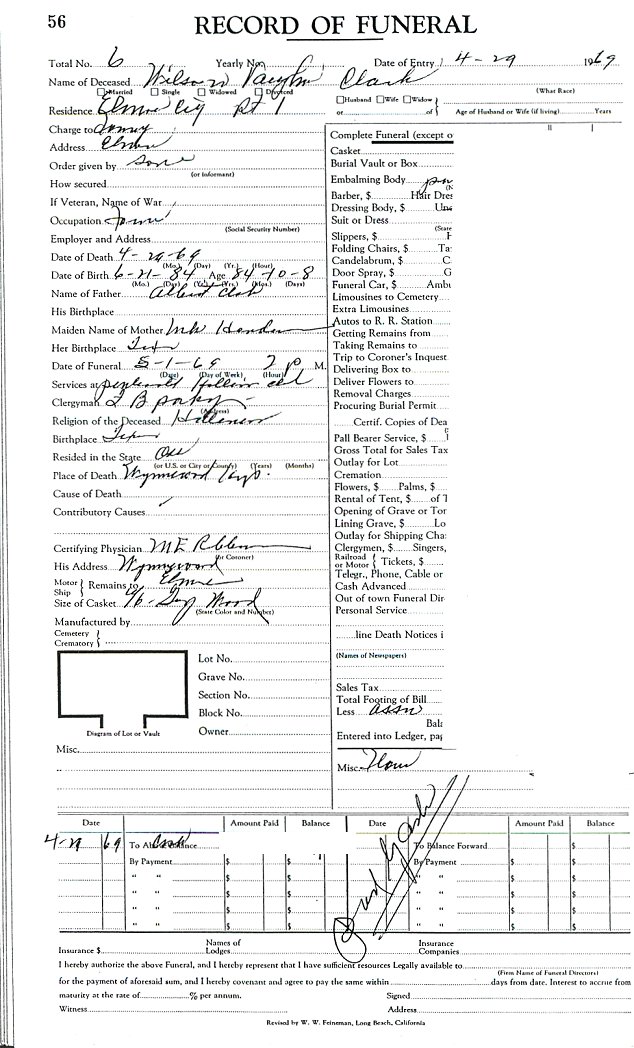 56
RECORD OF FUNERAL
Total No. 6 Yearly No. Date of Entry 4-29 1969
Name of Deceased Wilson Vaughn Clark
Married Single Widowed Divorced Husband Wife Widow (What Race)
Residence Elmore City Rt 1 or of Age of Husband or Wife (if living) Years
Charge to
Address Elmore
Order given by Sons
(or Informant)
How secured
If Veteran, Name of War
Occupation
(Social Security Number)
Employer and Address
Date of Death 4-29-69
(Mo.) (Day) (Yr.) (Hour)
Date of Birth 6-21-84 Age 84-10-8
(Mo.) (Day) (Yr.) (Yrs.) (Mos.) (Days)
Name of Father Albert Clark
His Birthplace
Maiden Name of Mother
Her Birthplace Tex
Date of Funeral 5-1-69 2 p M.
(Date) (Day of Week) (Hour)
Services at
Clergyman
(Address)
Religion of the Deceased
Birthplace Tex
Resided in the State
(or U.S. or City or County) (Years) (Months)
Place of Death Wynnewood
Cause of Death
Contributory Causes
Certifying Physician M E
(or Coroner)
His Address Wynnewood
Motor Ship Remains to Elmore
Size of Casket 6/6 Wood
(State Color and Number)
Manufactured by
Cemetery
Crematory
Lot No.
Grave No.
Section No.
Block No.
Owner
Diagram of Lot or Vault
Misc.
Complete Funeral (except o
Casket
Burial Vault or Box
Embalming Body
(N
Barber, $ Hair Dres
Dressing Body, $ Und
Suit or Dress
(State
Slippers, $ H
Folding Chairs, $ Ta
Candelabrum, $ C
Door Spray, $ G
Funeral Car, $ Ambu
Limousines to Cemetery
Extra Limousines
Autos to R. R. Station
Getting Remains from
Taking Remains to
Trip to Coroner's Inquest
Delivering Box to
Deliver Flowers to
Removal Charges
Procuring Burial Permit
Certif. Copies of Dea
Pall Bearer Service, $
Gross Total for Sales Tax
Outlay for Lot
Cremation
Flowers, $ Palms, $
Rental of Tent, $ of T
Opening of Grave or Tor
Lining Grave, $ Lo
Outlay for Shipping Cha
Clergymen, $ Singers,
Railroad or Motor Tickets, $
Telegr., Phone, Cable or
Cash Advanced
Out of town Funeral Dir
Personal Service
line Death Notices i
(Names of Newspapers)
Sales Tax
Total Footing of Bill
Less Assn
Bala
Entered into Ledger, pag
Misc.
Date Amount Paid Balance Date Amount Paid Balance
4-29 69 To Balance $ To Balance Forward $
By Payment $ $ By Payment $ $
" " $ $ " " $ $
" " $ $ " " $ $
" " $ $ " " $ $
Insurance $ Names of Lodges Insurance Companies
I hereby authorize the above Funeral, and I hereby represent that I have sufficient resources Legally available to
(Firm Name of Funeral Directors)
for the payment of aforesaid sum, and I hereby covenant and agree to pay the same within days from date. Interest to accrue from
maturity at the rate of % per annum. Signed
Witness Address
Revised by W. W. Feineman, Long Beach, California